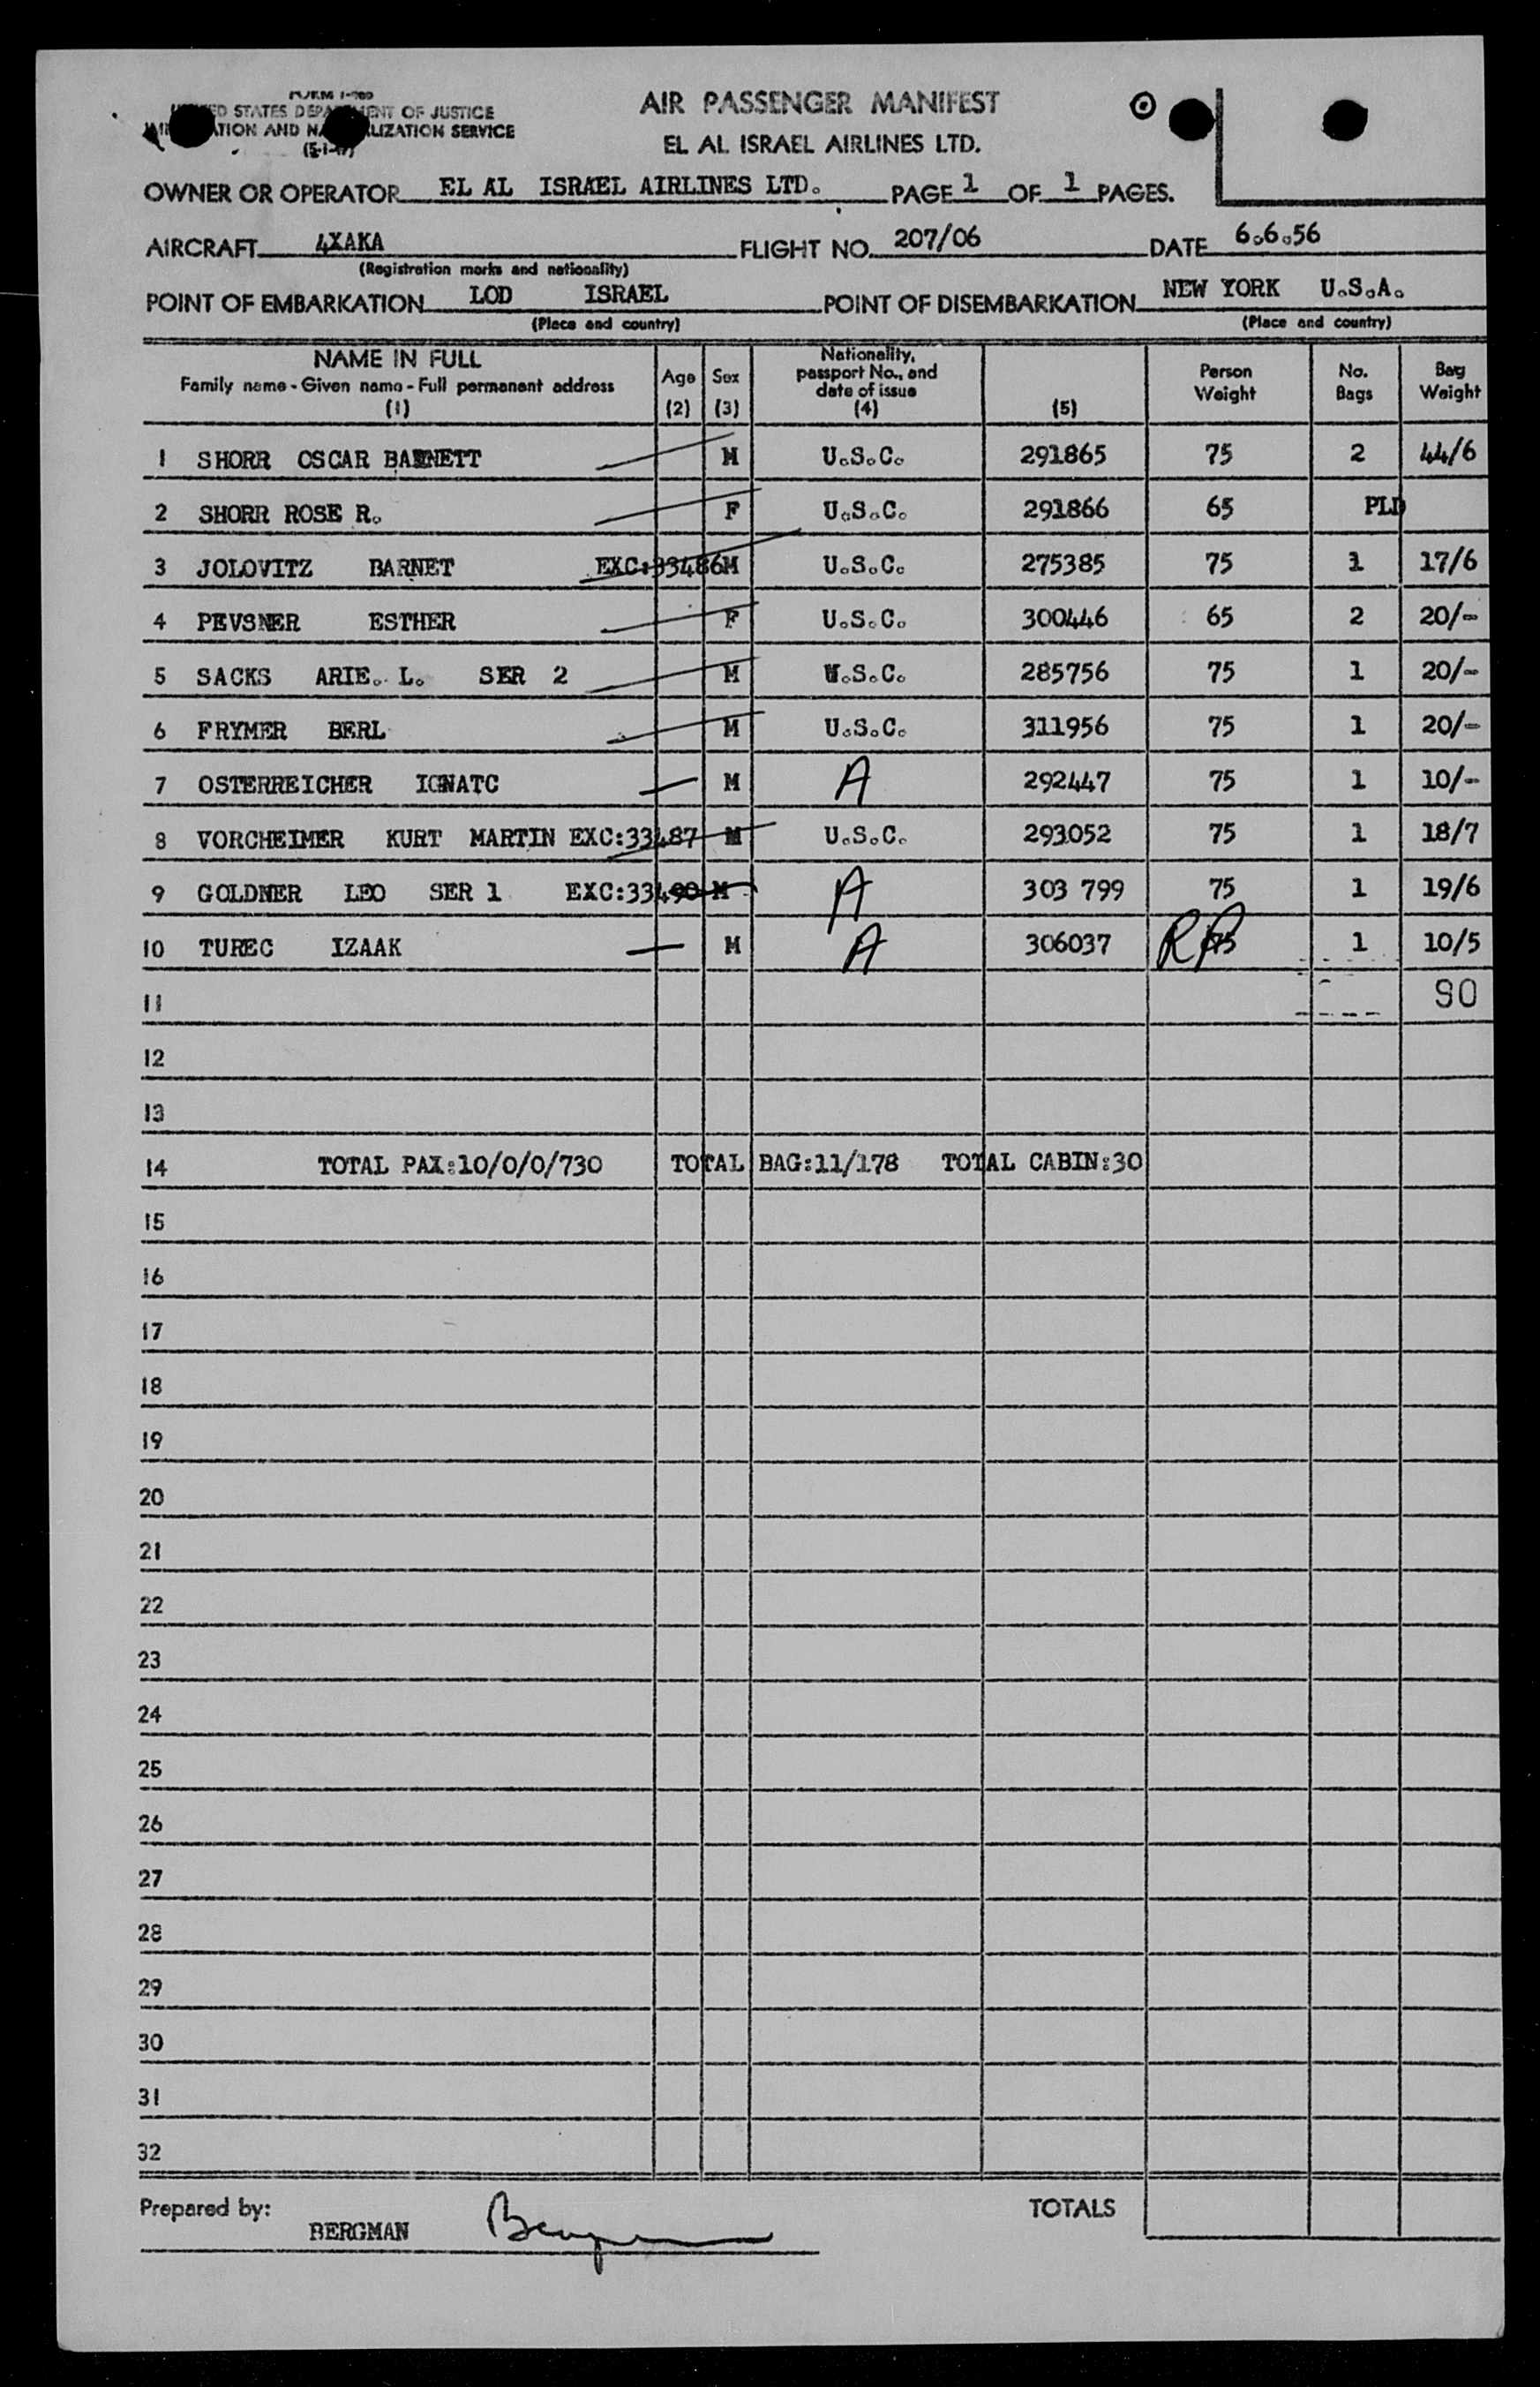 FORM I-
ED STATES DEPARTMENT OF JUSTICE
ATION AND NATURALIZATION SERVICE
AIR PASSENGER MANIFEST
EL AL ISRAEL AIRLINES LTD.
OWNER OR OPERATOR EL AL ISRAEL AIRLINES LTD. PAGE 1 OF 1 PAGES.
AIRCRAFT 4XAKA FLIGHT NO. 207/06 DATE 6.6.56
(Registration marks and nationality)
POINT OF EMBARKATION LOD ISRAEL POINT OF DISEMBARKATION NEW YORK U.S.A.
(Place and country) (Place and country)
NAME IN FULL
Family name - Given name - Full permanent address
(1)
Age
(2)
Sex
(3)
Nationality,
passport No., and
date of issue
(4)
(5)
Person
Weight
No.
Bags
Bag
Weight
1 SHORR OSCAR BARNETT M U.S.C. 291865 75 2 44/6
2 SHORR ROSE R. F U.S.C. 291866 65 PLD
3 JOLOVITZ BARNET EXC:33486 M U.S.C. 275385 75 1 17/6
4 PEVSNER ESTHER F U.S.C. 300446 65 2 20/-
5 SACKS ARIE. L. SER 2 M U.S.C. 285756 75 1 20/-
6 FRYMER BERL M U.S.C. 311956 75 1 20/-
7 OSTERREICHER IGNATC M A 292447 75 1 10/-
8 VORCHEIMER KURT MARTIN EXC:33487 M U.S.C. 293052 75 1 18/7
9 GOLDNER LEO SER 1 EXC:33490 M A 303 799 75 1 19/6
10 TUREC IZAAK M A 306037 75 1 10/5
11 90
12
13
14 TOTAL PAX:10/0/0/730 TOTAL BAG:11/178 TOTAL CABIN:30
15
16
17
18
19
20
21
22
23
24
25
26
27
28
29
30
31
32
Prepared by: TOTALS
BERGMAN